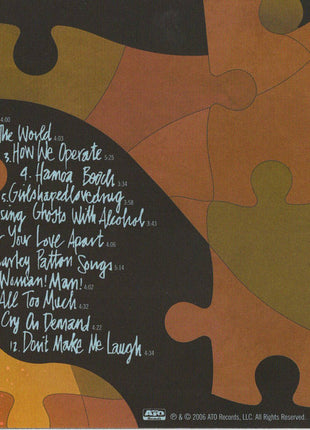 4:00
The World 4:03
3. How We Operate 5:25
4. Hamoa Beach 3:34
5. Girlshapedlovedrug 3:58
sing Ghosts With Alcohol 3:43
Your Love Apart 4:06
arley Patton Songs 5:14
Woman! Man! 4:02
All Too Much 4:32
Cry On Demand 4:22
12. Don't Make Me Laugh 4:34
ATO
℗ & © 2006 ATO Records, LLC. All Rights Reserved.